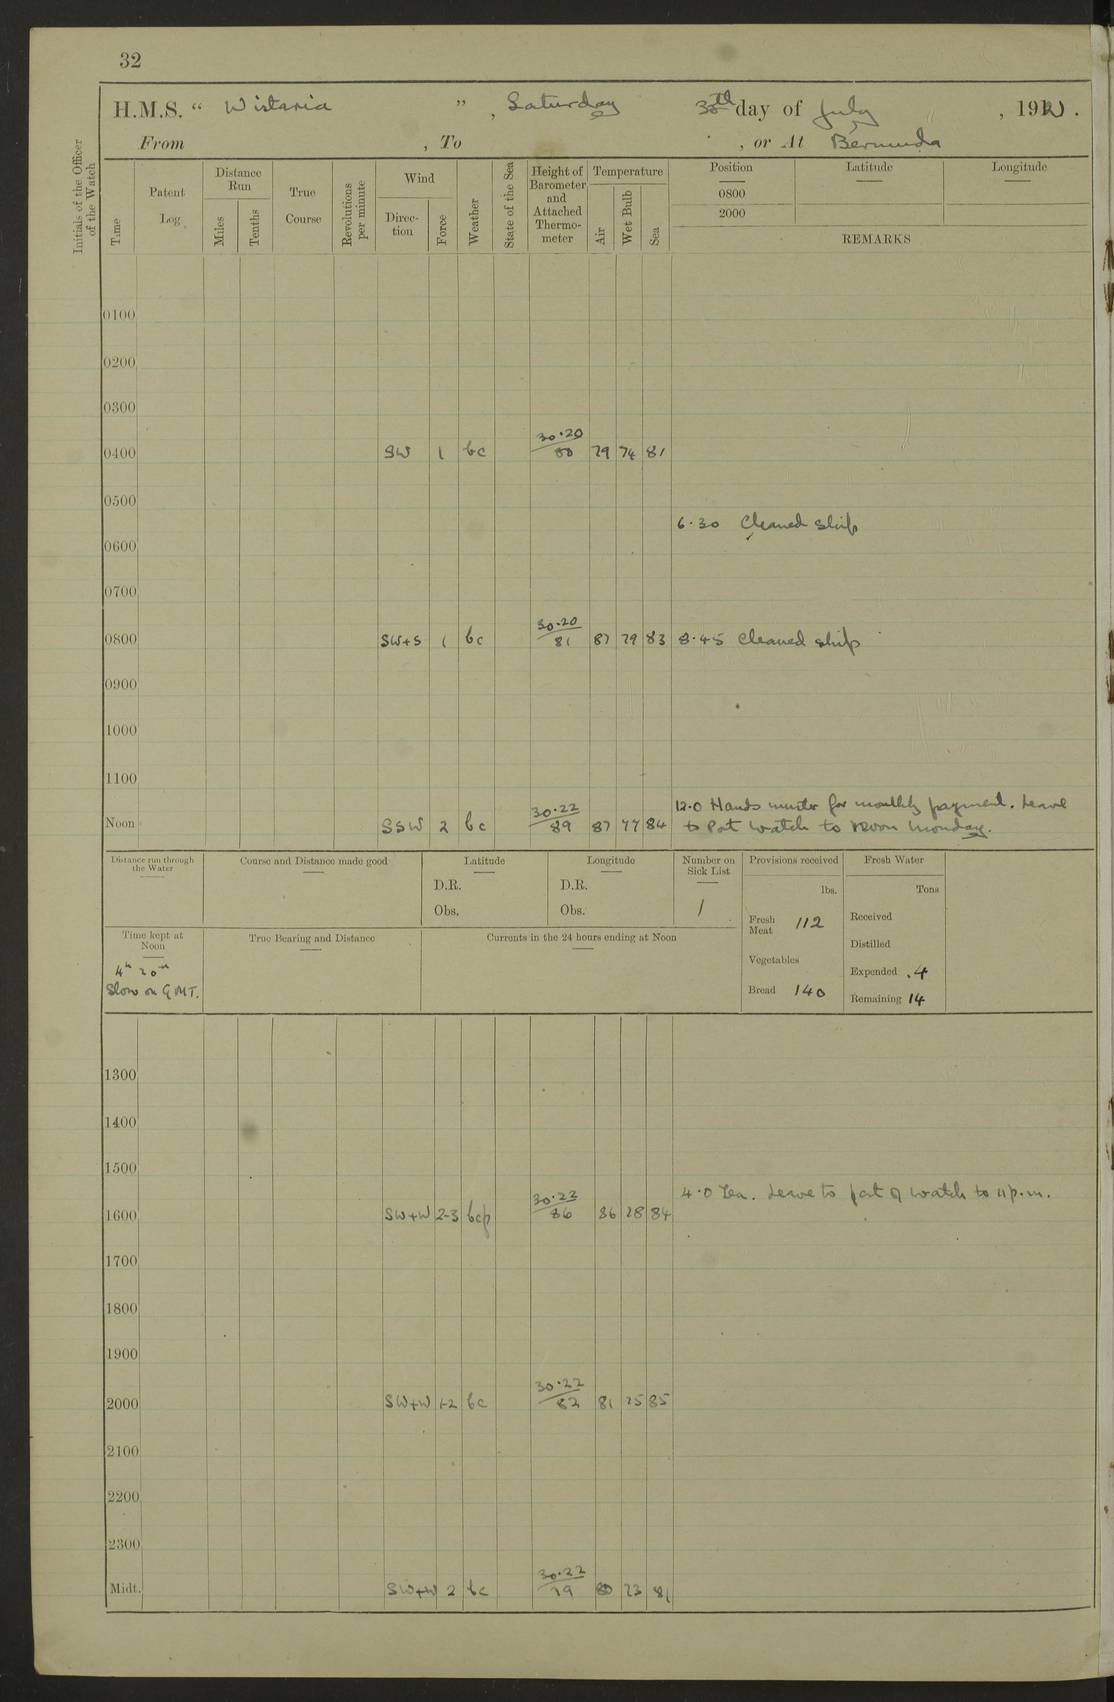 32
H.M.S. “ Wistaria ” , Saturday 30th day of July , 1921 .
From , To , or At Bermuda
Initials of the Officer of the Watch
Time
Patent Log
Distance Run
Miles
Tenths
True Course
Revolutions per minute
Wind
Direction
Force
Weather
State of the Sea
Height of Barometer and Attached Thermometer
Temperature
Air
Wet Bulb
Sea
Position Latitude Longitude
0800
2000
REMARKS
0100
0200
0300
0400 SW 1 bc 30.20/80 79 74 81
0500
6.30 Cleaned ship
0600
0700
0800 SW+S 1 bc 30.20/81 87 79 83 8.45 Cleaned ship
0900
1000
1100
12.0 Hands muster for monthly payment. Leave
Noon SSW 2 bc 30.22/89 87 77 84 to Port Watch to noon Monday.
Distance run through the Water
Course and Distance made good
Latitude
D.R.
Obs.
Longitude
D.R.
Obs.
Number on Sick List
1
Provisions received
lbs.
Fresh Meat 112
Vegetables
Bread 140
Fresh Water
Tons
Received
Distilled
Expended .4
Remaining 14
Time kept at Noon
4h 20m
Slow on GMT.
True Bearing and Distance
Currents in the 24 hours ending at Noon
1300
1400
1500
4.0 Tea. Leave to part of watch to 11 p.m.
1600 SW+W 2-3 bcp 30.22/86 86 78 84
1700
1800
1900
2000 SW+W 1-2 bc 30.22/82 81 75 85
2100
2200
2300
Midt. SW+W 2 bc 30.22/79 80 73 81